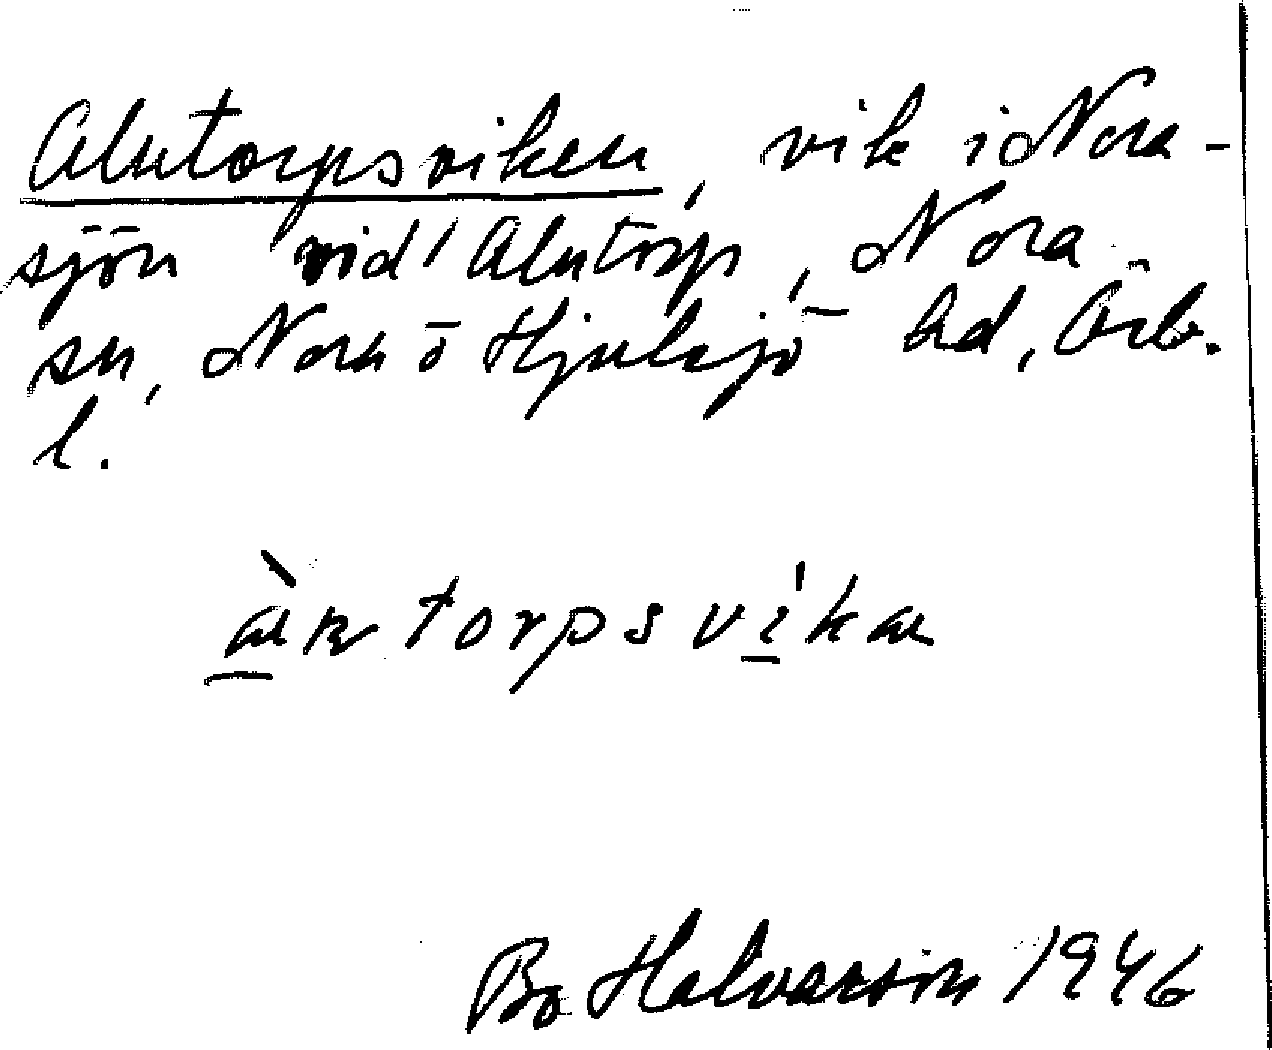 Alntorpsviken, vik i Nora-
sjön vid Alntorp, Nora
sn, Nora o Hjulsjö hd, Örb.
l.
torpsvika
Bo Halvarson 1946